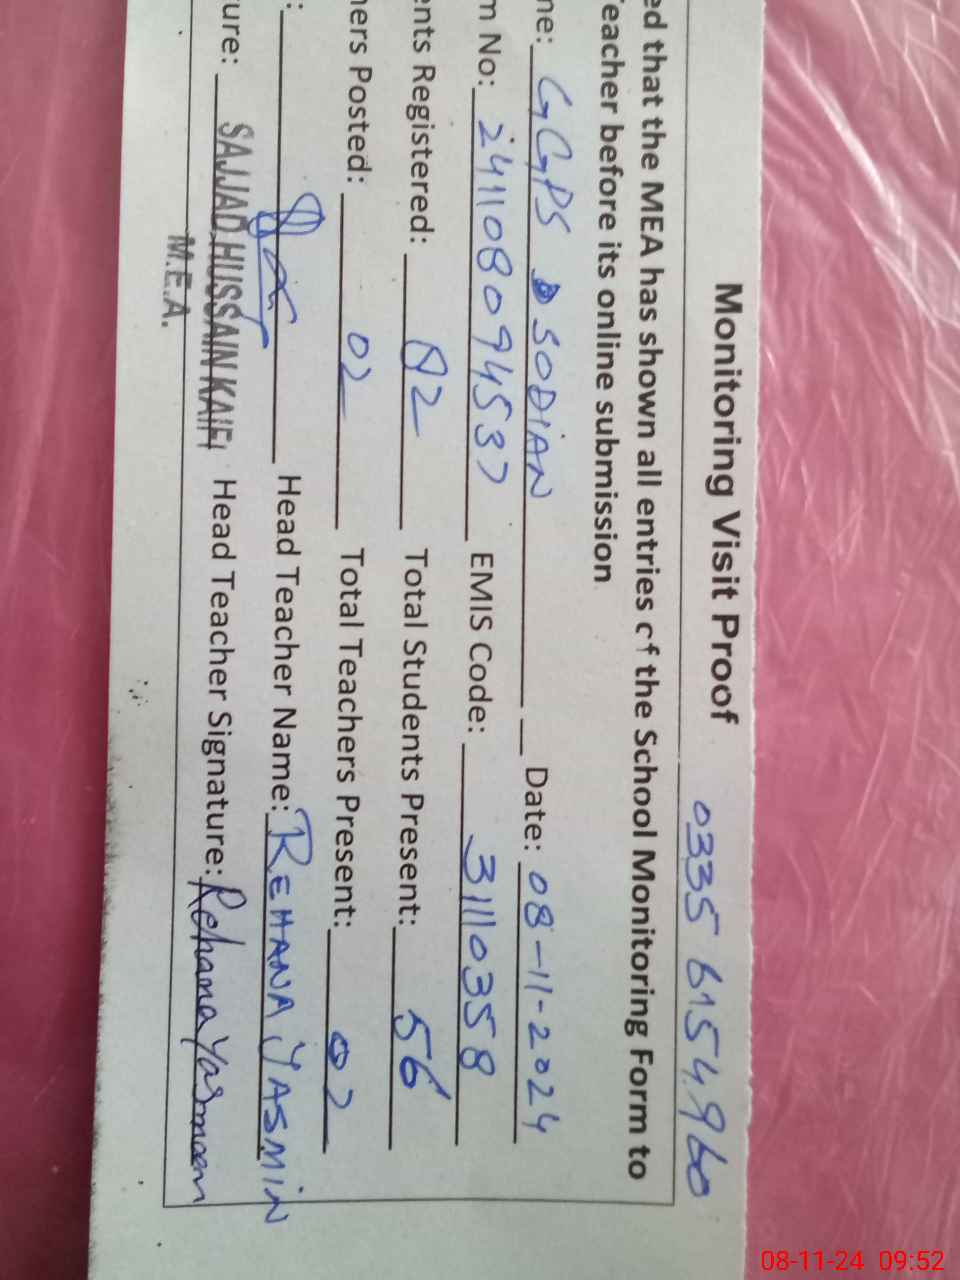 Monitoring Visit Proof 0335 6154960
ed that the MEA has shown all entries of the School Monitoring Form to
eacher before its online submission
ne: GGPS SODIAN Date: 08-11-2024
m No: 241108094537 EMIS Code: 31110358
ents Registered: 82 Total Students Present: 56
ners Posted: 02 Total Teachers Present: 02
: Head Teacher Name: REHANA YASMIN
ure: SAJJAD HUSSAIN KAIFI Head Teacher Signature: Rehana Yasmeen
M.E.A.
08-11-24 09:52